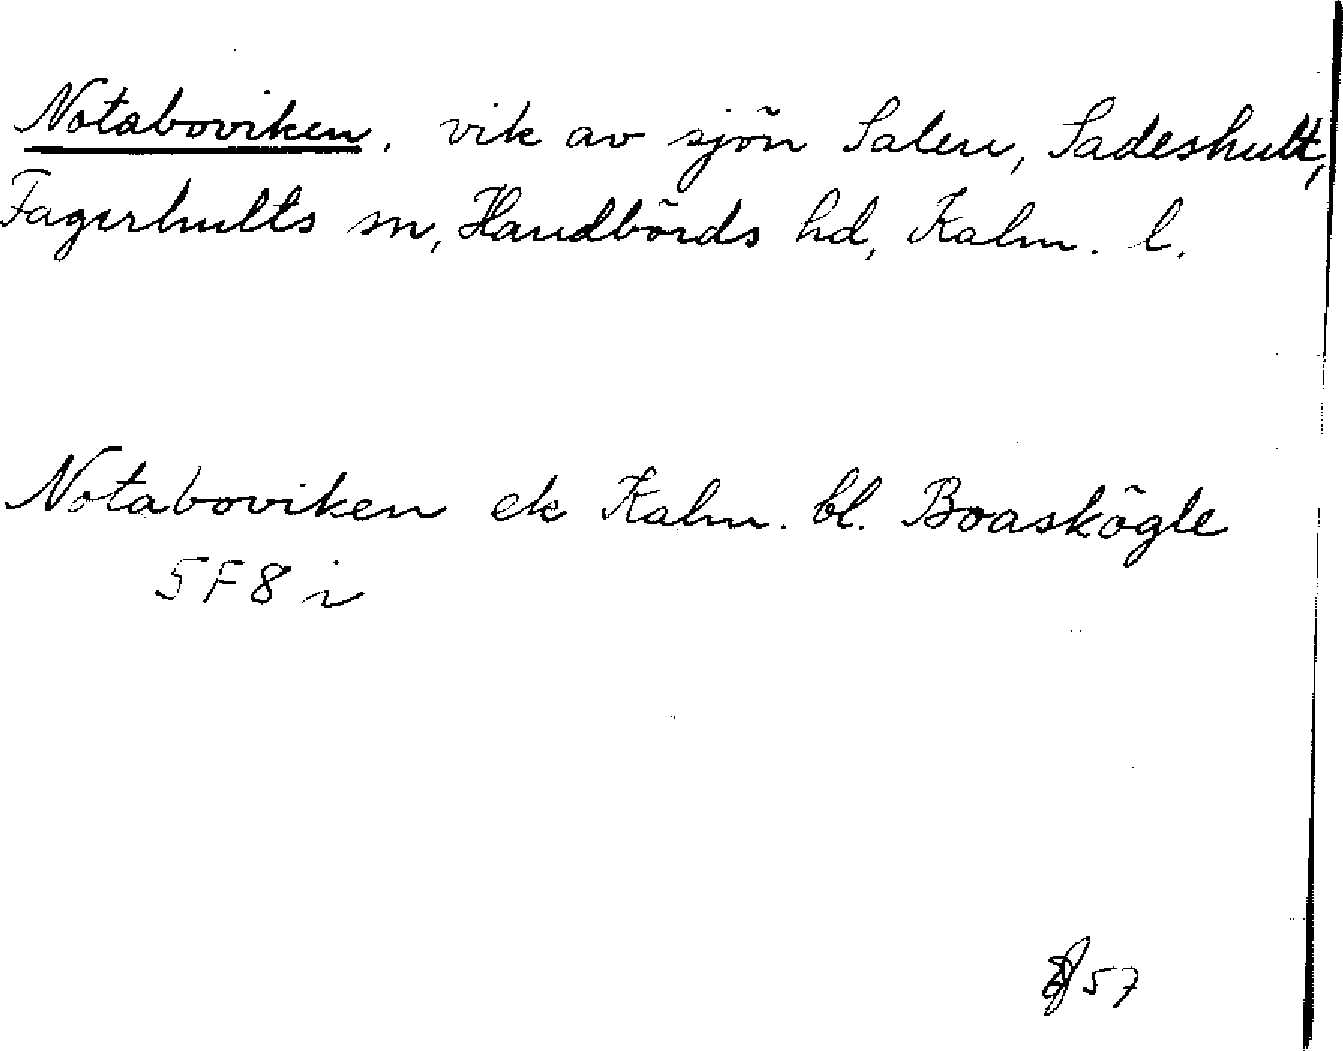 Notaboviken, vik av sjön Salen, Sadeshult,
Fagerhults sn, Handbörds hd, Kalm. l.
Notaboviken ek Kalm. bl. Boaskögle
5F8 i
57